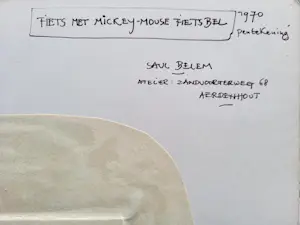 FIETS MET MICKEY-MOUSE FIETSBEL
1970
pentekening
SAUL BELEM
ATELIER: ZANDVOORTERWEG 68
AERDENHOUT